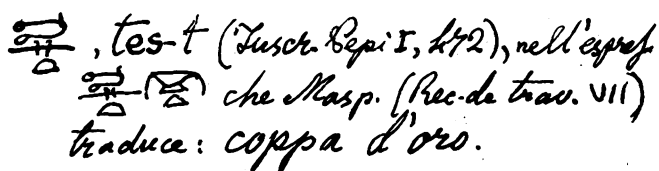 , tes-t (Inscr. Pepi I, 472), nell'espress.
che Masp. (Rec. de trav. VII)
traduce: coppa d'oro.